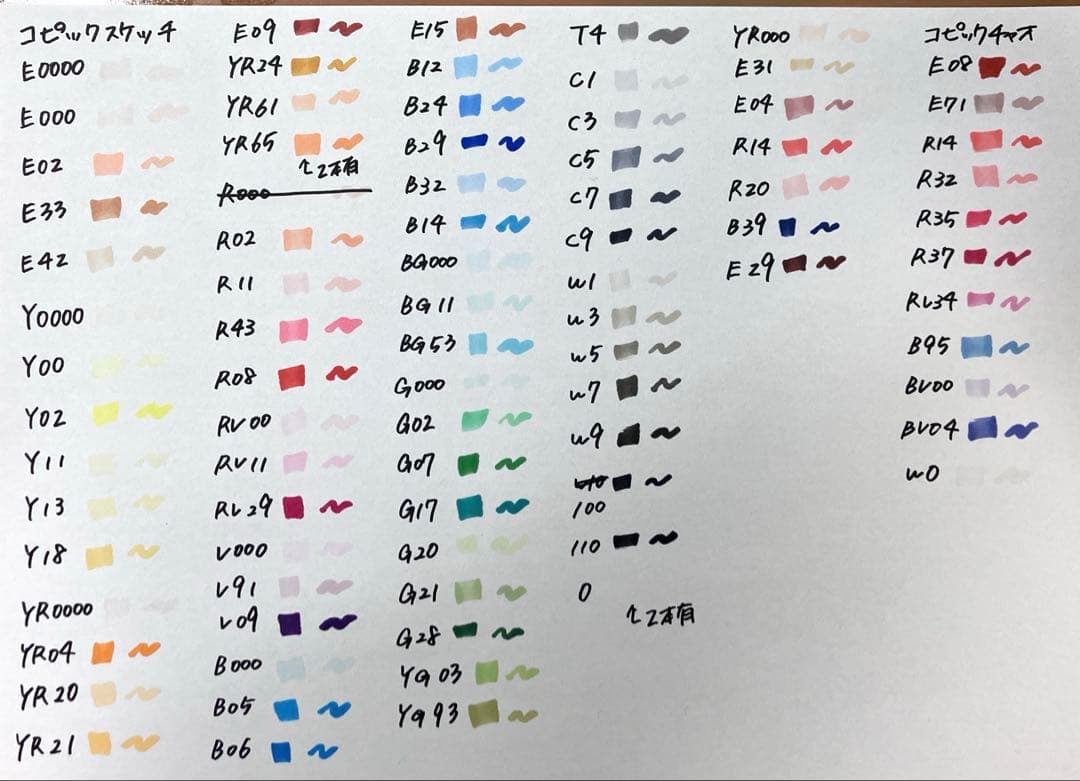 コピックスケッチ
E0000
E000
E02
E33
E42
Y0000
Y00
Y02
Y11
Y13
Y18
YR0000
YR04
YR20
YR21
E09
YR24
YR61
YR65
↑2本有
R000
R02
R11
R43
R08
RV00
RV11
RV29
V000
V91
V09
B000
B05
B06
E15
B12
B24
B29
B32
B14
BG000
BG11
BG53
G000
G02
G07
G17
G20
G21
G28
YG03
YG93
T4
C1
C3
C5
C7
C9
W1
W3
W5
W7
W9
100
110
0
↑2本有
YR000
E31
E04
R14
R20
B39
E29
コピックチャオ
E08
E71
R14
R32
R35
R37
RV34
B95
BV00
BV04
W0